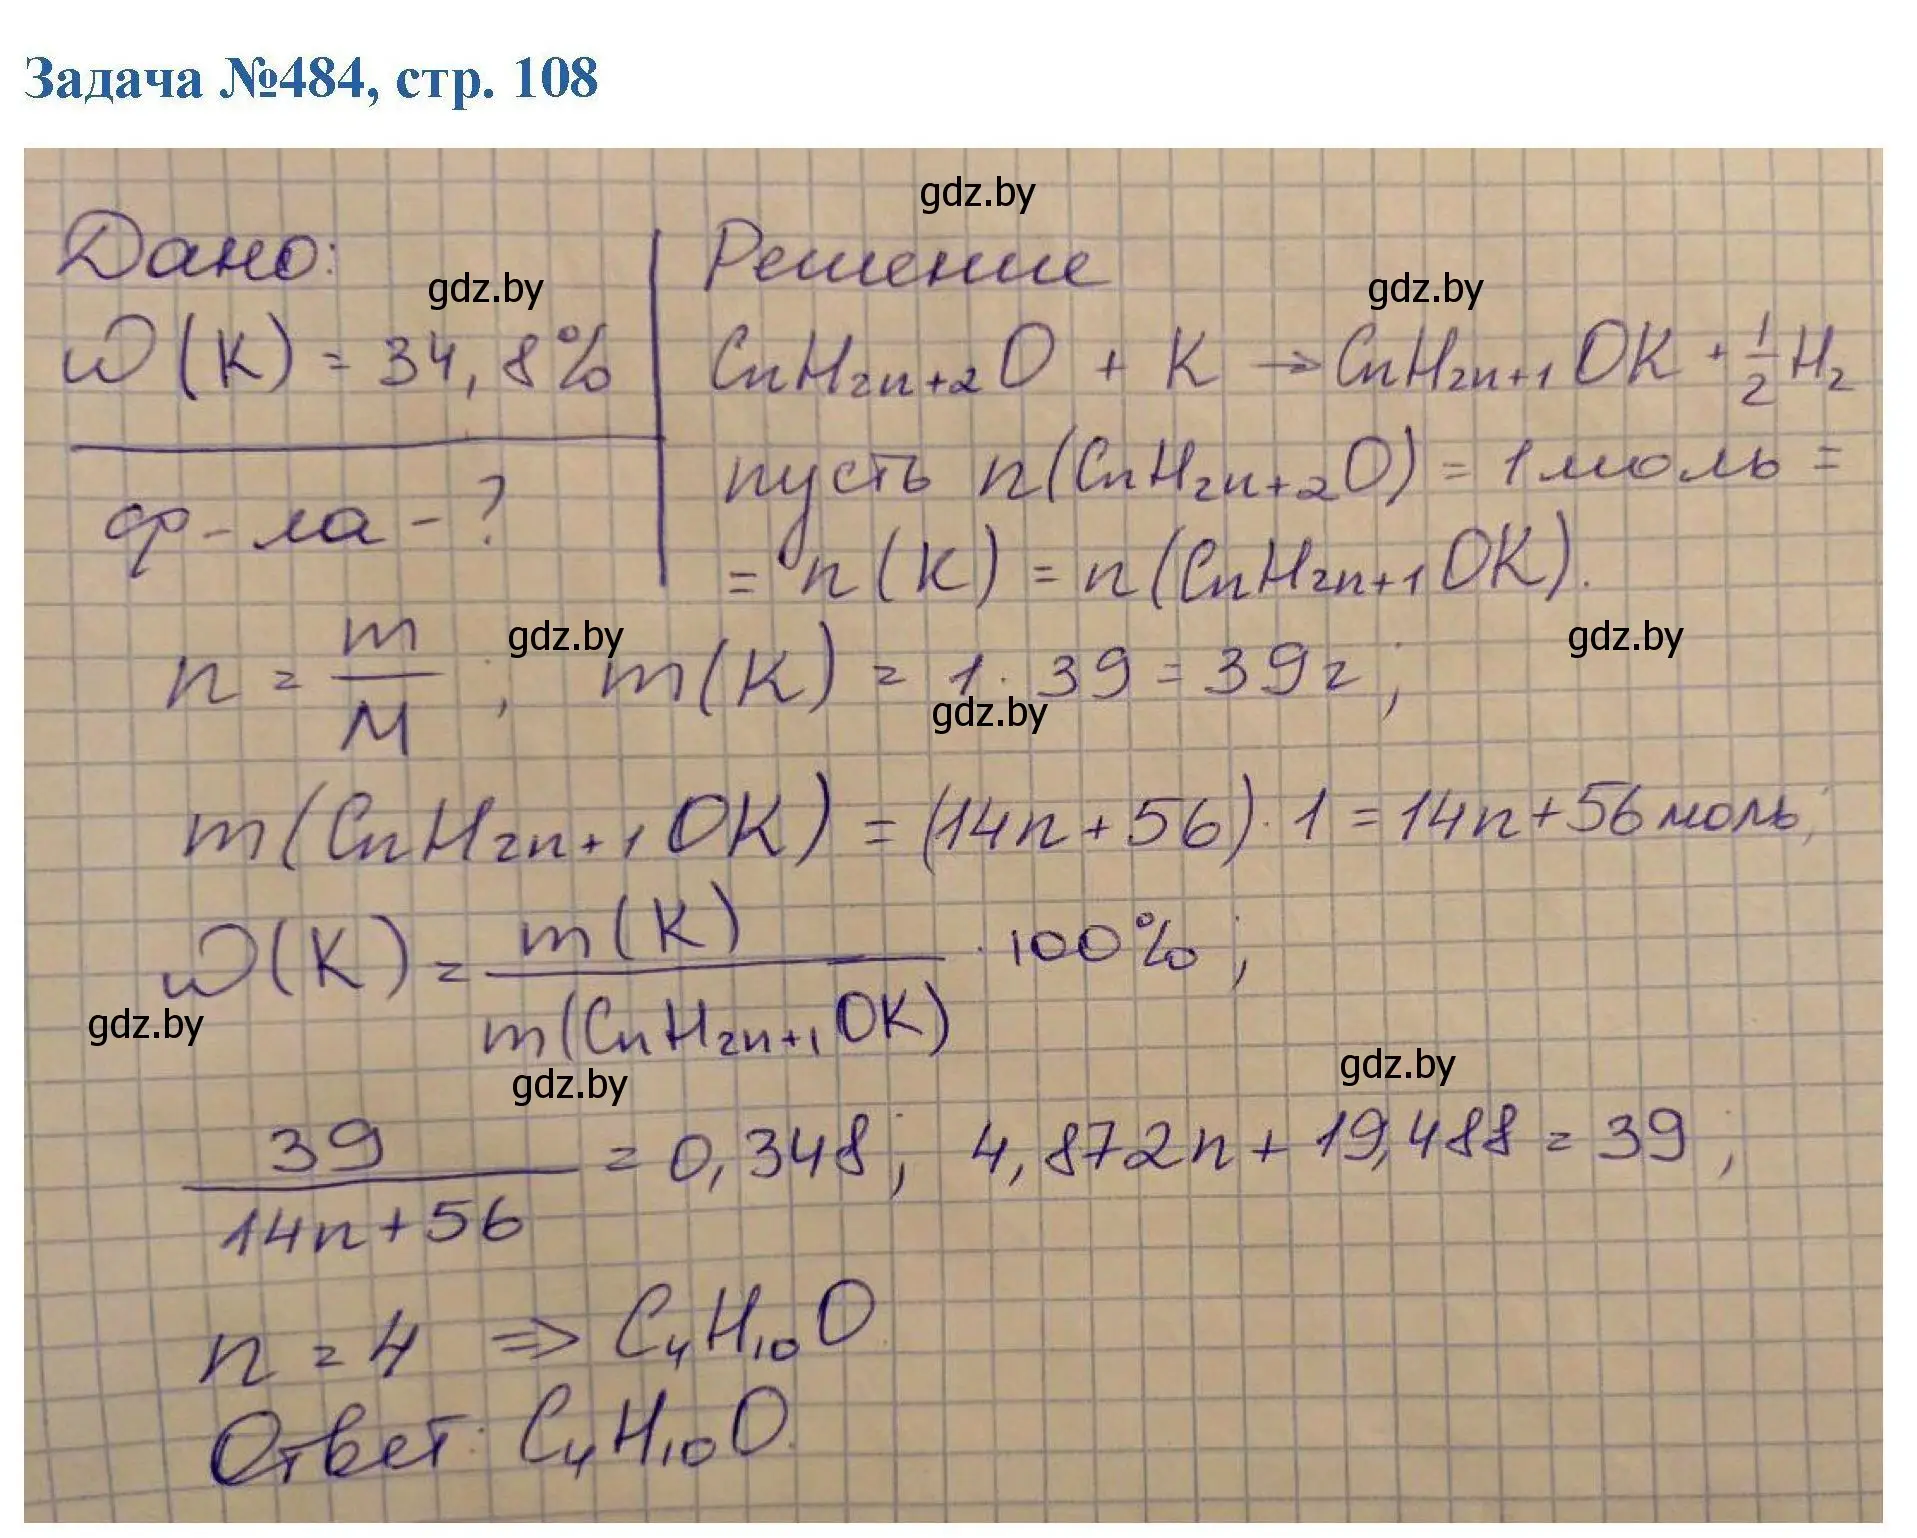 Задача №484, стр. 108
gdz.by
Дано:
Решение
gdz.by
gdz.by
ω(K) = 34,8%
CnH2n+2O + K → CnH2n+1OK + 1/2 H2
пусть n(CnH2n+2O) = 1 моль =
ф-ла - ?
= n(K) = n(CnH2n+1OK).
gdz.by
gdz.by
n = m/M ; m(K) = 1 · 39 = 39г ;
gdz.by
m(CnH2n+1OK) = (14n + 56) · 1 = 14n + 56 моль;
ω(K) = m(K)/m(CnH2n+1OK) · 100% ;
gdz.by
gdz.by
gdz.by
39/(14n+56) = 0,348; 4,872n + 19,488 = 39 ;
n = 4 ⇒ C4H10O
Ответ: C4H10O.